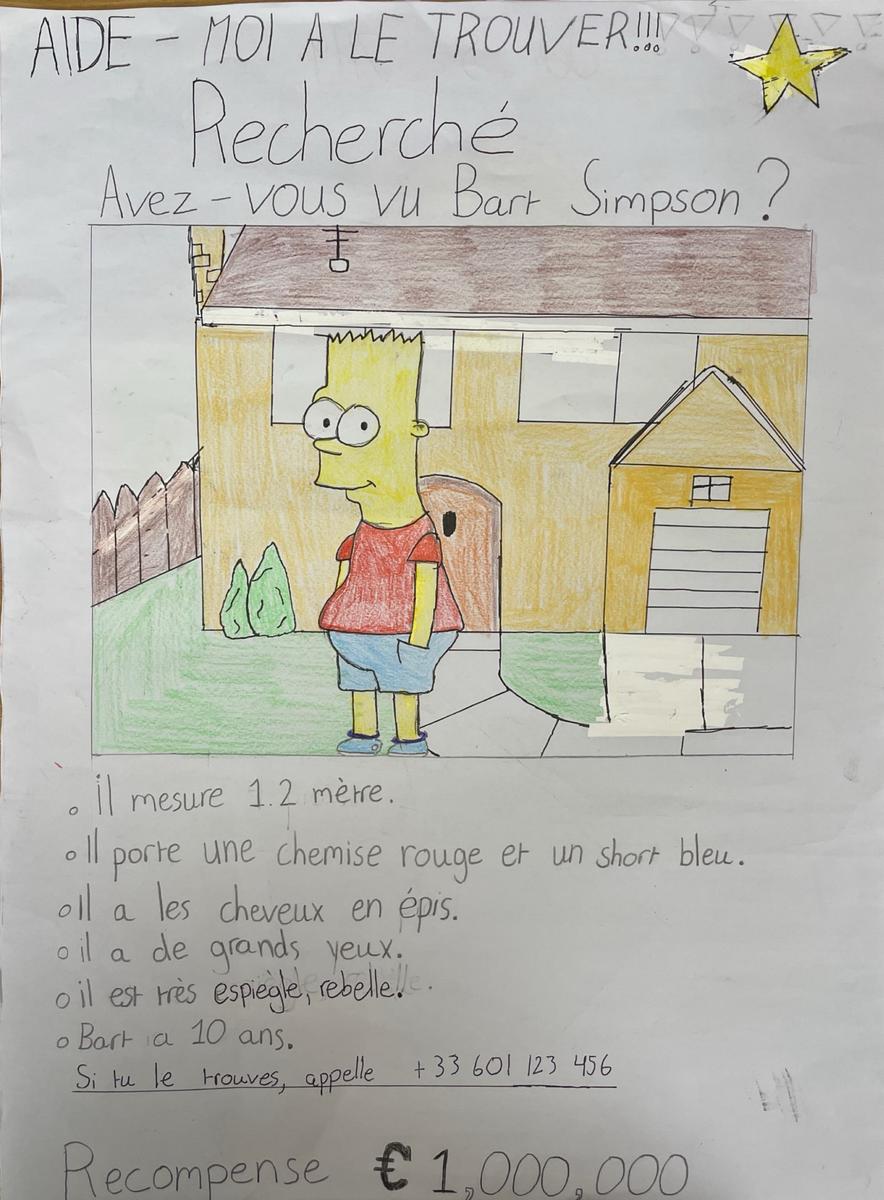 AIDE - MOI A LE TROUVER!!!
Recherché
Avez-vous vu Bart Simpson?
il mesure 1.2 mètre.
Il porte une chemise rouge et un short bleu.
Il a les cheveux en épis.
il a de grands yeux.
il est très espiègle, rebelle.
Bart a 10 ans.
Si tu le trouves, appelle +33 601 123 456
Recompense € 1,000,000